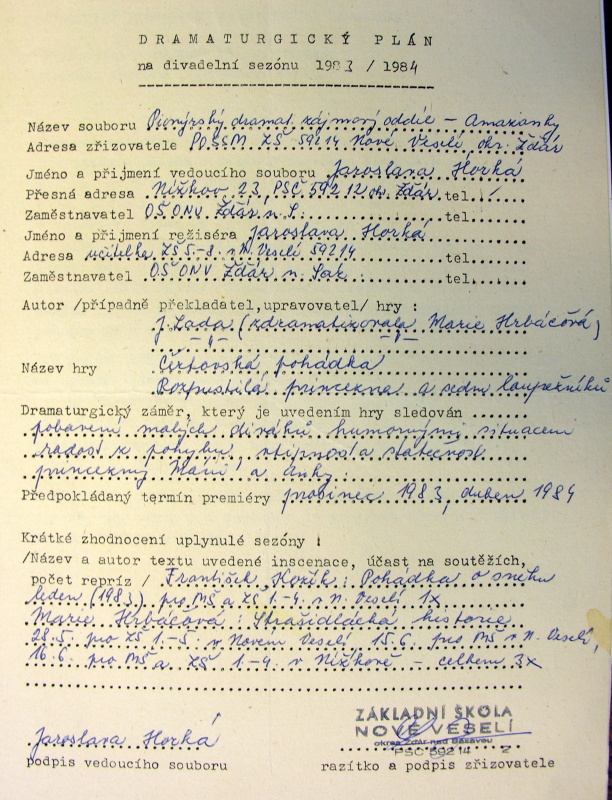 DRAMATURGICKÝ PLÁN
na divadelní sezónu 1983 / 1984
Název souboru Pionýrský dramat. zájmový oddíl – Amazonky
Adresa zřizovatele POSSM ZŠ 59214 Nové Veselí, okr. Žďár
Jméno a přijmení vedoucího souboru Jaroslava Horká
Přesná adresa Nížkov 23, PSČ 592 12 okr. Žďár tel.
Zaměstnavatel OŠ ONV Žďár n. S. tel.
Jméno a přijmení režiséra Jaroslava Horká
Adresa učitelka ZŠ 5.-8. v N. Veselí 59214 tel.
Zaměstnavatel OŠ ONV Žďár n. Sáz. tel.
Autor /případně překladatel,upravovatel/ hry :
J. Lada (zdramatizovala Marie Hrbáčová)
–"– –"–
Název hry Čertovská pohádka
Rozpustilá princezna a sedm loupežníků
Dramaturgický záměr, který je uvedením hry sledován
pobavení malých diváků humornými situacemi
radost z pohybu, vtipnost a statečnost
princezny Máni a
Předpokládaný termín premiéry prosinec 1983, duben 1984
Krátké zhodnocení uplynulé sezóny :
/Název a autor textu uvedené inscenace, účast na soutěžích,
počet repríz / František Kožík: Pohádka o sněhu
leden (1983) pro MŠ a ZŠ 1.-4. v N. Veselí 1x
Marie Hrbáčová: Strašidlácká historie
28.5. pro ZŠ 1.-5. v Novém Veselí 15.6. pro MŠ v N. Veselí,
16.6. pro MŠ a ZŠ 1.-4. v Nížkově – celkem 3x
Jaroslava Horká
podpis vedoucího souboru
ZÁKLADNÍ ŠKOLA
NOVÉ VESELÍ
okres Žďár nad Sázavou
PSČ 592 14 2
razítko a podpis zřizovatele